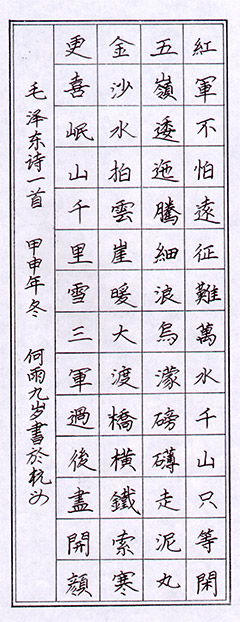 紅軍不怕遠征難萬水千山只等閑
五嶺逶迤騰細浪烏濛磅礴走泥丸
金沙水拍雲崖暖大渡橋橫鐵索寒
更喜岷山千里雪三軍過後盡開顏
毛泽东诗一首 甲申年冬 何雨九岁書於杭州